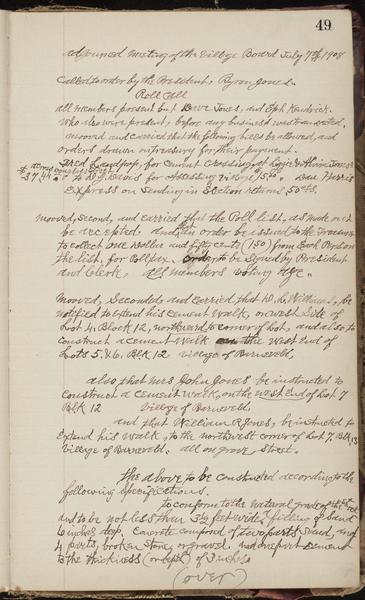 49
adjourned meeting of the Village Board July 7th 1908
Called to order by the President, Byron Jones.
Roll Call
all members present but Dave Jones, and Eph Kendrick.
who also were present, before any business was transacted.
moved and carried that the following bills be allowed, and
orders drawn on treasury for their payment.
Fred Landrop, for cement crossing at Logic & Alvin Jones
37.44
to for assessing village, 15.00. Dan Harris
Express on sending in Election returns 50cts.
moved, second, and carried that the Poll list, as made out
be accepted, and an order be issued to the Treasurer
to collect one Dollar and fifty cents (1.50) from Each Person on
the list, for Polltax. order to be signed by President
and Clerk, all members voting Aye.
moved, Seconded, and carried, that W. L. Williams, be
notified to extend his cement walk, on west side of
Lot 4, Block 12, northward to corner of Lot, and also to
construct a cement walk on the west end of
Lots 5. & 6. Blk 12 village of Barneveld.
also that Mrs John Jones be instructed to
construct a cement walk, on the west end of Lot 7
Blk 12 Village of Barneveld.
and that William R Jones, be instructed to
Extend his walk, to the northwest corner of Lot 7, Blk 13
Village of Barneveld. all on grove street.
the above to be constructed according to the
following specifications.
to conform to the natural grade of the street
and to be not less than 3½ feet wide, filling of sand
6 inches deep, concrete composed of two parts sand, and
4 parts, broken stone, or gravel, and one part cement
to the thickness (or depth) of 3 inches
(over)